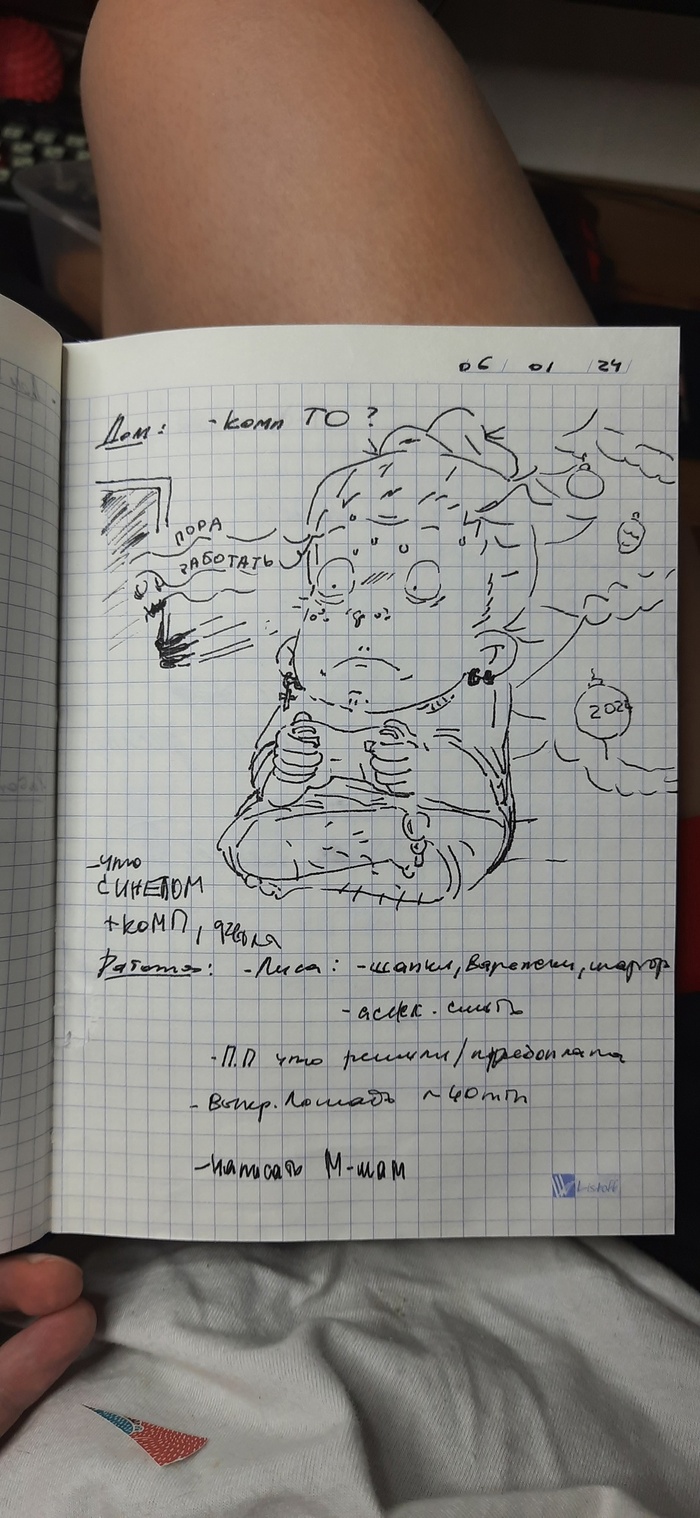 06 01 24
Дом: - комп ТО ?
ПОРА
РАБОТАТЬ
2024
- что
СИНЕПОМ
+ КОМП,
Работа: - Лиса: - шапки, варежки, шарф
- аспек. снять
- П.П что решили/предоплата
- Выкр. Лошадь ~40min
- Написать М-шам
Listoff